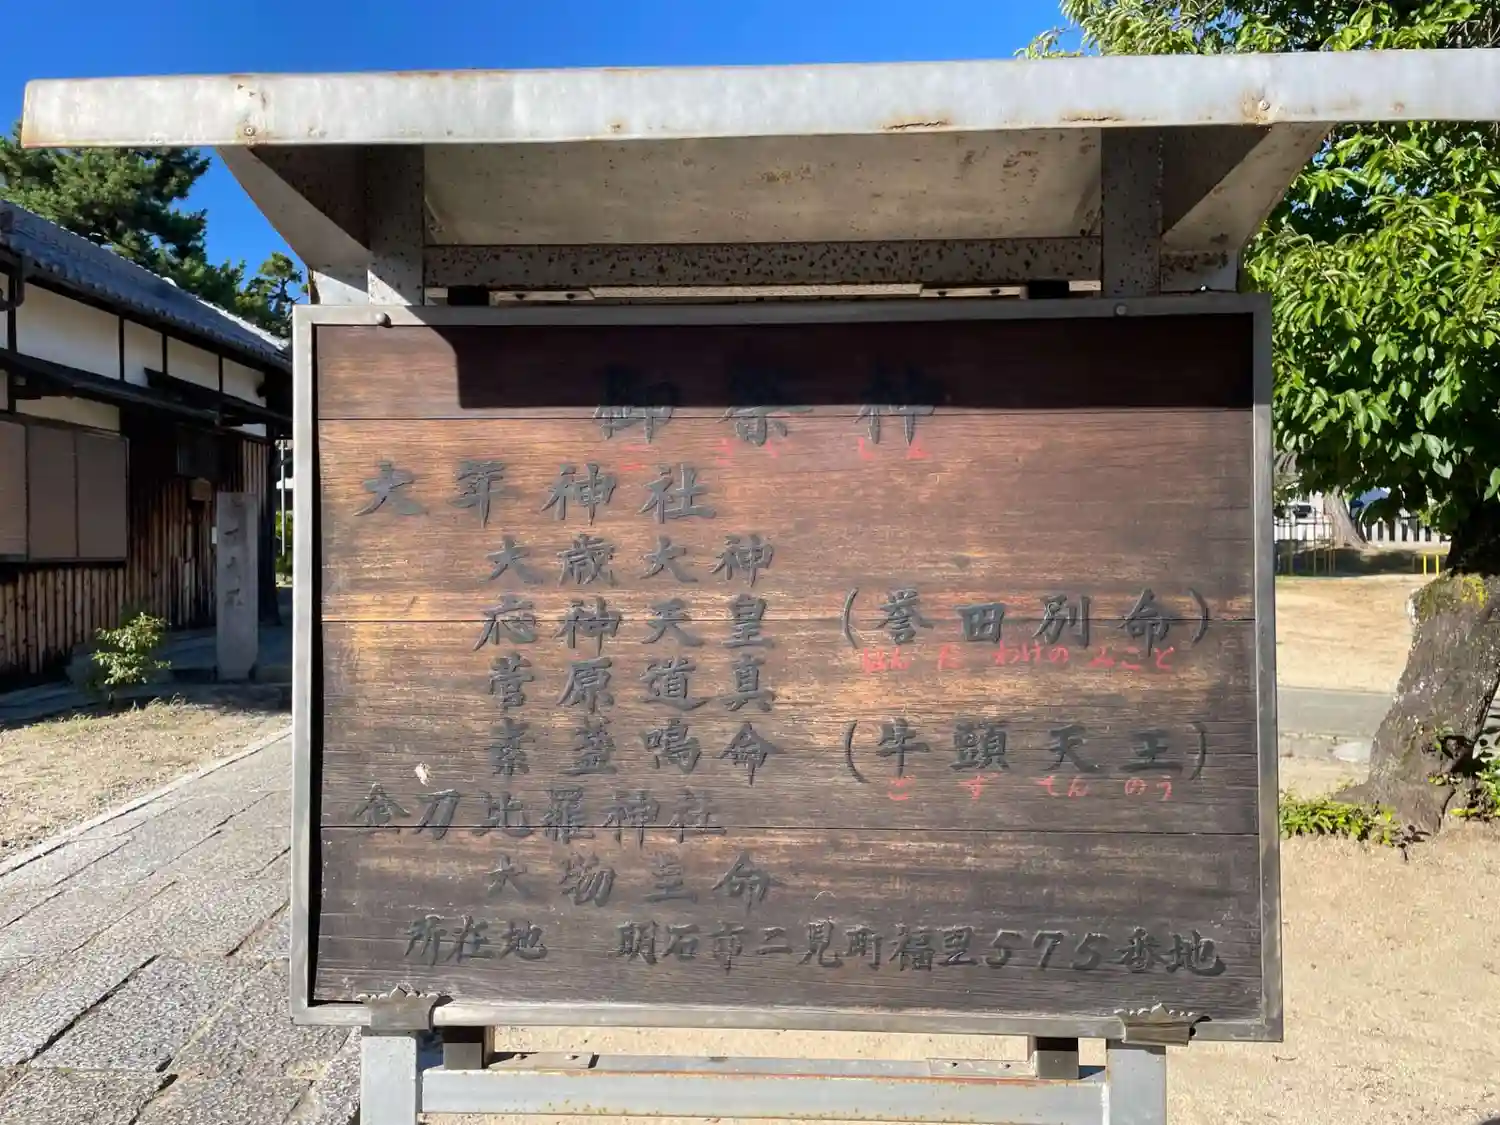 御祭神
ごさいしん
大年神社
大歳大神
応神天皇 (誉田別命)
ほんだ わけの みこと
菅原道真
素盞鳴命 (牛頭天王)
ごずてんのう
金刀比羅神社
大物主命
所在地 明石市二見町福里575番地